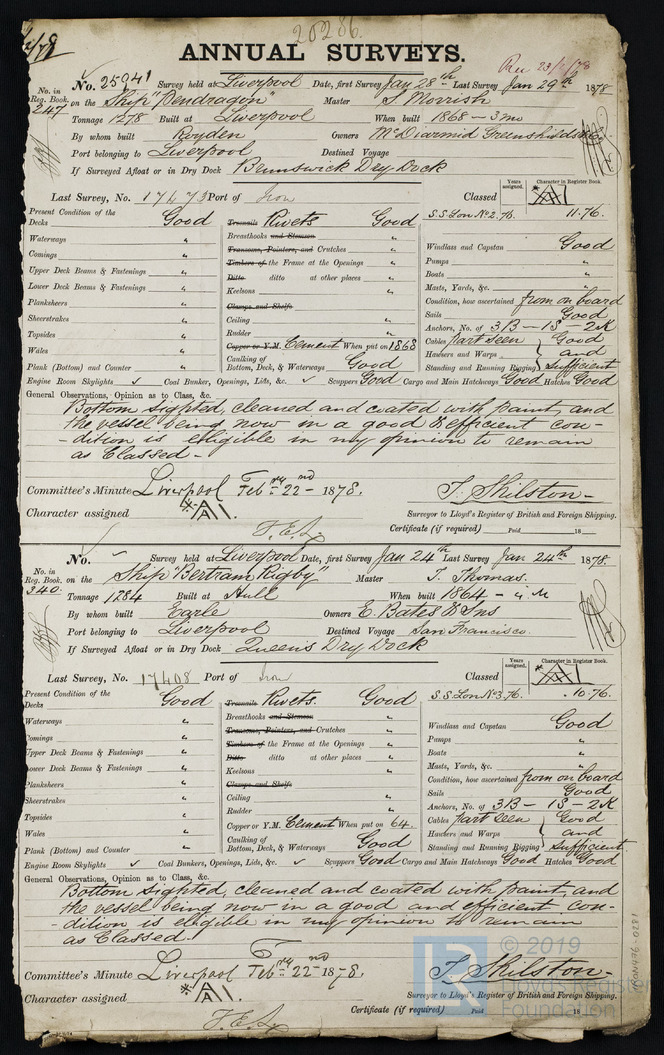 20286.
ANNUAL SURVEYS.
Rec 23/2/78
No. 25941 Survey held at Liverpool Date, first Survey Jan 28th Last Survey Jan 29th 1878
No. in Reg. Book. 247 on the Ship "Pendragon" Master S. Morrish
Tonnage 1278 Built at Liverpool When built 1868 - 3 mo
By whom built Royden Owners McDiarmid Greenshields & Co
Port belonging to Liverpool Destined Voyage
If Surveyed Afloat or in Dry Dock Brunswick Dry Dock
Last Survey, No. 17473 Port of Iron Classed Years assigned. Character in Register Book. A1
S.S. Lon No 2. 76. 11.76.
Present Condition of the
Decks Good
Waterways "
Comings "
Upper Deck Beams & Fastenings "
Lower Deck Beams & Fastenings "
Planksheers "
Sheerstrakes "
Topsides "
Wales "
Plank (Bottom) and Counter "
Treenails Rivets Good
Breasthooks and Stemson "
Transoms, Pointers, and Crutches "
Timbers of the Frame at the Openings "
Ditto ditto at other places "
Keelsons "
Clamps and Shelfs
Ceiling "
Rudder "
Copper or Y.M. Cement When put on 1868
Caulking of Bottom, Deck, & Waterways Good
Windlass and Capstan Good
Pumps "
Boats "
Masts, Yards, &c. "
Condition, how ascertained from on board
Sails Good
Anchors, No. of 3B - 1S - 2K
Cables Part Seen Good
Hawsers and Warps and
Standing and Running Rigging Sufficient
Engine Room Skylights ✓ Coal Bunker, Openings, Lids, &c. ✓ Scuppers Good Cargo and Main Hatchways Good Hatches Good
General Observations, Opinion as to Class, &c.
Bottom sighted, cleaned and coated with paint, and
the vessel being now in a good & efficient con-
-dition is eligible in my opinion to remain
as Classed -
Committee's Minute Liverpool Feb'ry 22nd 1878. T. Skilston -
Character assigned A1. Surveyor to Lloyd's Register of British and Foreign Shipping.
Certificate (if required) Paid 18
No. Survey held at Liverpool Date, first Survey Jan 24th Last Survey Jan 24th 1878.
No. in Reg. Book. 340. on the Ship "Bertram Rigby" Master T. Thomas.
Tonnage 1284 Built at Hull When built 1864 - 4 M
By whom built Earle Owners E. Bates & Sns
Port belonging to Liverpool Destined Voyage San Francisco.
If Surveyed Afloat or in Dry Dock Queen's Dry Dock
Last Survey, No. 17408 Port of Iron Classed Years assigned. Character in Register Book. A1
S.S. Lon No 3. 76. 10.76.
Present Condition of the
Decks Good
Waterways "
Comings "
Upper Deck Beams & Fastenings "
Lower Deck Beams & Fastenings "
Planksheers "
Sheerstrakes "
Topsides "
Wales "
Plank (Bottom) and Counter "
Treenails Rivets. Good
Breasthooks and Stemson "
Transoms, Pointers, and Crutches "
Timbers of the Frame at the Openings "
Ditto ditto at other places "
Keelsons "
Clamps and Shelfs
Ceiling "
Rudder "
Copper or Y.M. Cement When put on 64.
Caulking of Bottom, Deck, & Waterways Good
Windlass and Capstan Good
Pumps "
Boats "
Masts, Yards, &c. "
Condition, how ascertained from on board
Sails Good
Anchors, No. of 3B - 1S - 2K
Cables Part Seen Good
Hawsers and Warps and
Standing and Running Rigging Sufficient
Engine Room Skylights ✓ Coal Bunkers, Openings, Lids, &c. ✓ Scuppers Good Cargo and Main Hatchways Good Hatches Good
General Observations, Opinion as to Class, &c.
Bottom sighted, cleaned and coated with paint, and
the vessel being now in a good and efficient con-
-dition is eligible in my opinion to remain
as Classed.
Committee's Minute Liverpool Feb'ry 22nd 1878. T. Skilston -
Character assigned A1. Surveyor to Lloyd's Register of British and Foreign Shipping.
Certificate (if required) Paid 18
© 2019
Lloyd's Register
Foundation